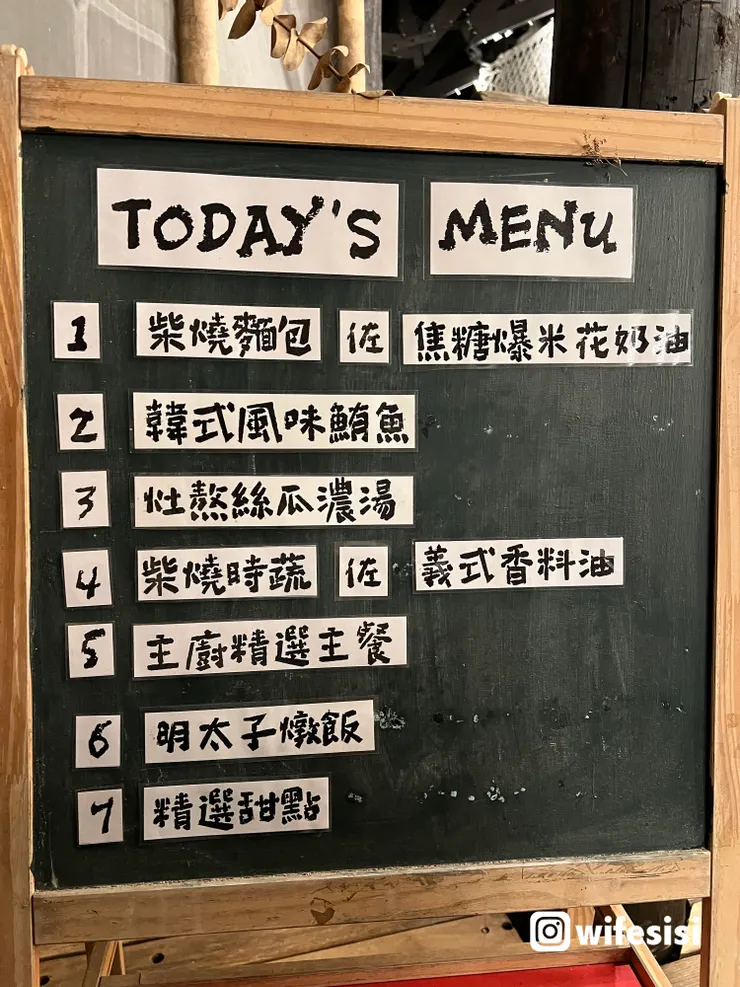 TODAY'S MENU
1 柴燒麵包 佐 焦糖爆米花奶油
2 韓式風味鮪魚
3 灶熬絲瓜濃湯
4 柴燒時蔬 佐 義式香料油
5 主廚精選主餐
6 明太子燉飯
7 精選甜點
wifesisi